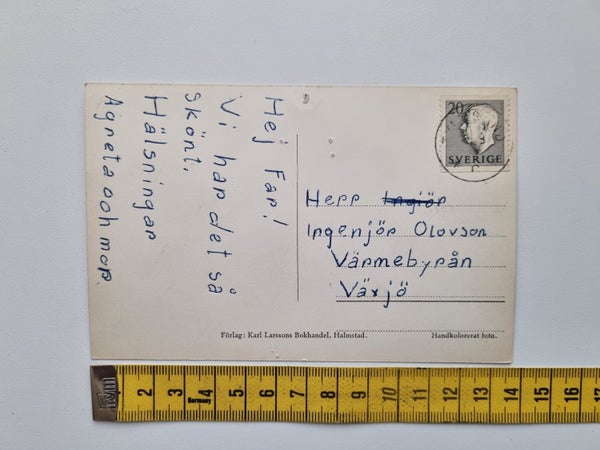 Hej Far!
Vi har det så
skönt.
Hälsningar
Agneta och mor.
20
SVERIGE
Herr Ingiör
Ingenjör Olovson
Värmebyrån
Växjö
Förlag: Karl Larssons Bokhandel, Halmstad.
Handkolorerat foto.
1 2 3 4 5 6 7 8 9 10 11 12 13 14 15 16
Germany